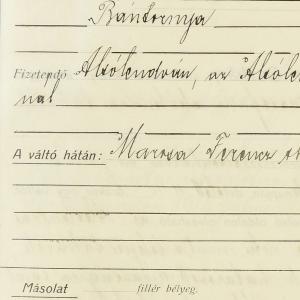 Bántornya
Fizetendő Alsólendván, az Alsólen
nál
A váltó hátán: Marosa Ferencz
Másolat fillér bélyeg.